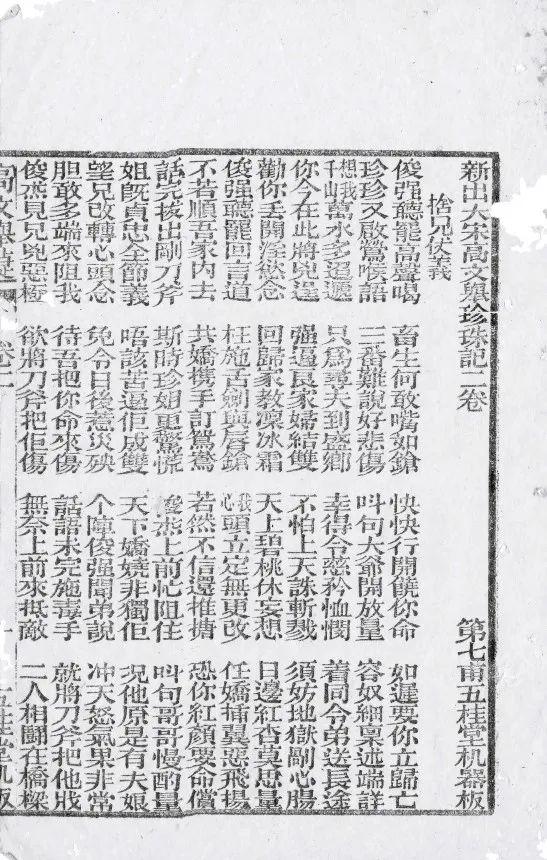 新出大宋高文舉珍珠記二卷 第七甫五桂堂机器板
捨兄伏義
俊强聽罷高聲喝 畜生何敢嘴如鎗 快快行開饒你命 如遲要你立歸亡
珍珍又啟鶯喉語 三番難說好悲傷 叫句大爺開放量 容奴細禀述端詳
想我千山萬水多迢遞 只為尋夫到盛鄉 幸得令慈矜恤憫 着同令弟送長途
你今在此將兇逞 强逼良家婦結雙 不怕上天誅斬戮 須妨地獄剮心腸
勸你丢開淫慾念 回歸家教凜冰霜 天上碧桃休妄想 日邊紅杏莫思量
俊强聽罷回言道 枉施舌劍與唇鎗 我心頭立定無更改 任嬌插翼惡飛揚
不若順吾家内去 共嬌携手訂鴛鴦 若然不信還推搪 恐你紅顏要命償
話完拔出剛刀斧 斯時珍姐更驚慌 俊杰上前忙阻住 叫句哥哥慢酌量
姐既貞忠全節義 唔該苦逼佢成雙 天下嬌嬈非獨佢 况他原是有夫娘
望兄改轉心頭念 免令日後惹災殃 个陣俊强聞弟說 冲天怒氣果非常
胆敢多端來阻我 待吾把你命來傷 話語未完施毒手 就將刀斧把他戕
俊杰見兄兇惡極 欲將刀斧把佢傷 無奈上前來抵敵 二人相鬪在橋樑
高文舉 卷二 一 五桂堂机板